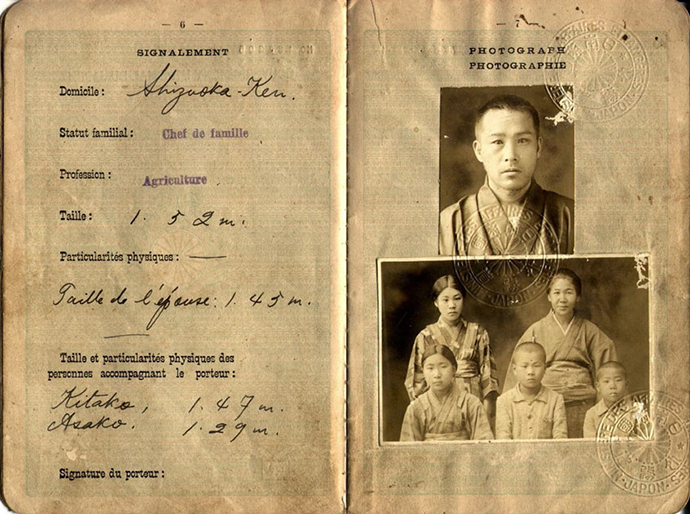 — 6 —
SIGNALEMENT
Domicile: Shizuoka-Ken.
Statut familial: Chef de famille
Profession: Agriculture
Taille: 1.52 m.
Particularités physiques: —
Taille de l'épouse: 1.45 m.
Taille et particularités physiques des
personnes accompagnant le porteur:
Kitako, 1.47 m.
Asako. 1.29 m.
Signature du porteur:
— 7 —
PHOTOGRAPH
PHOTOGRAPHIE